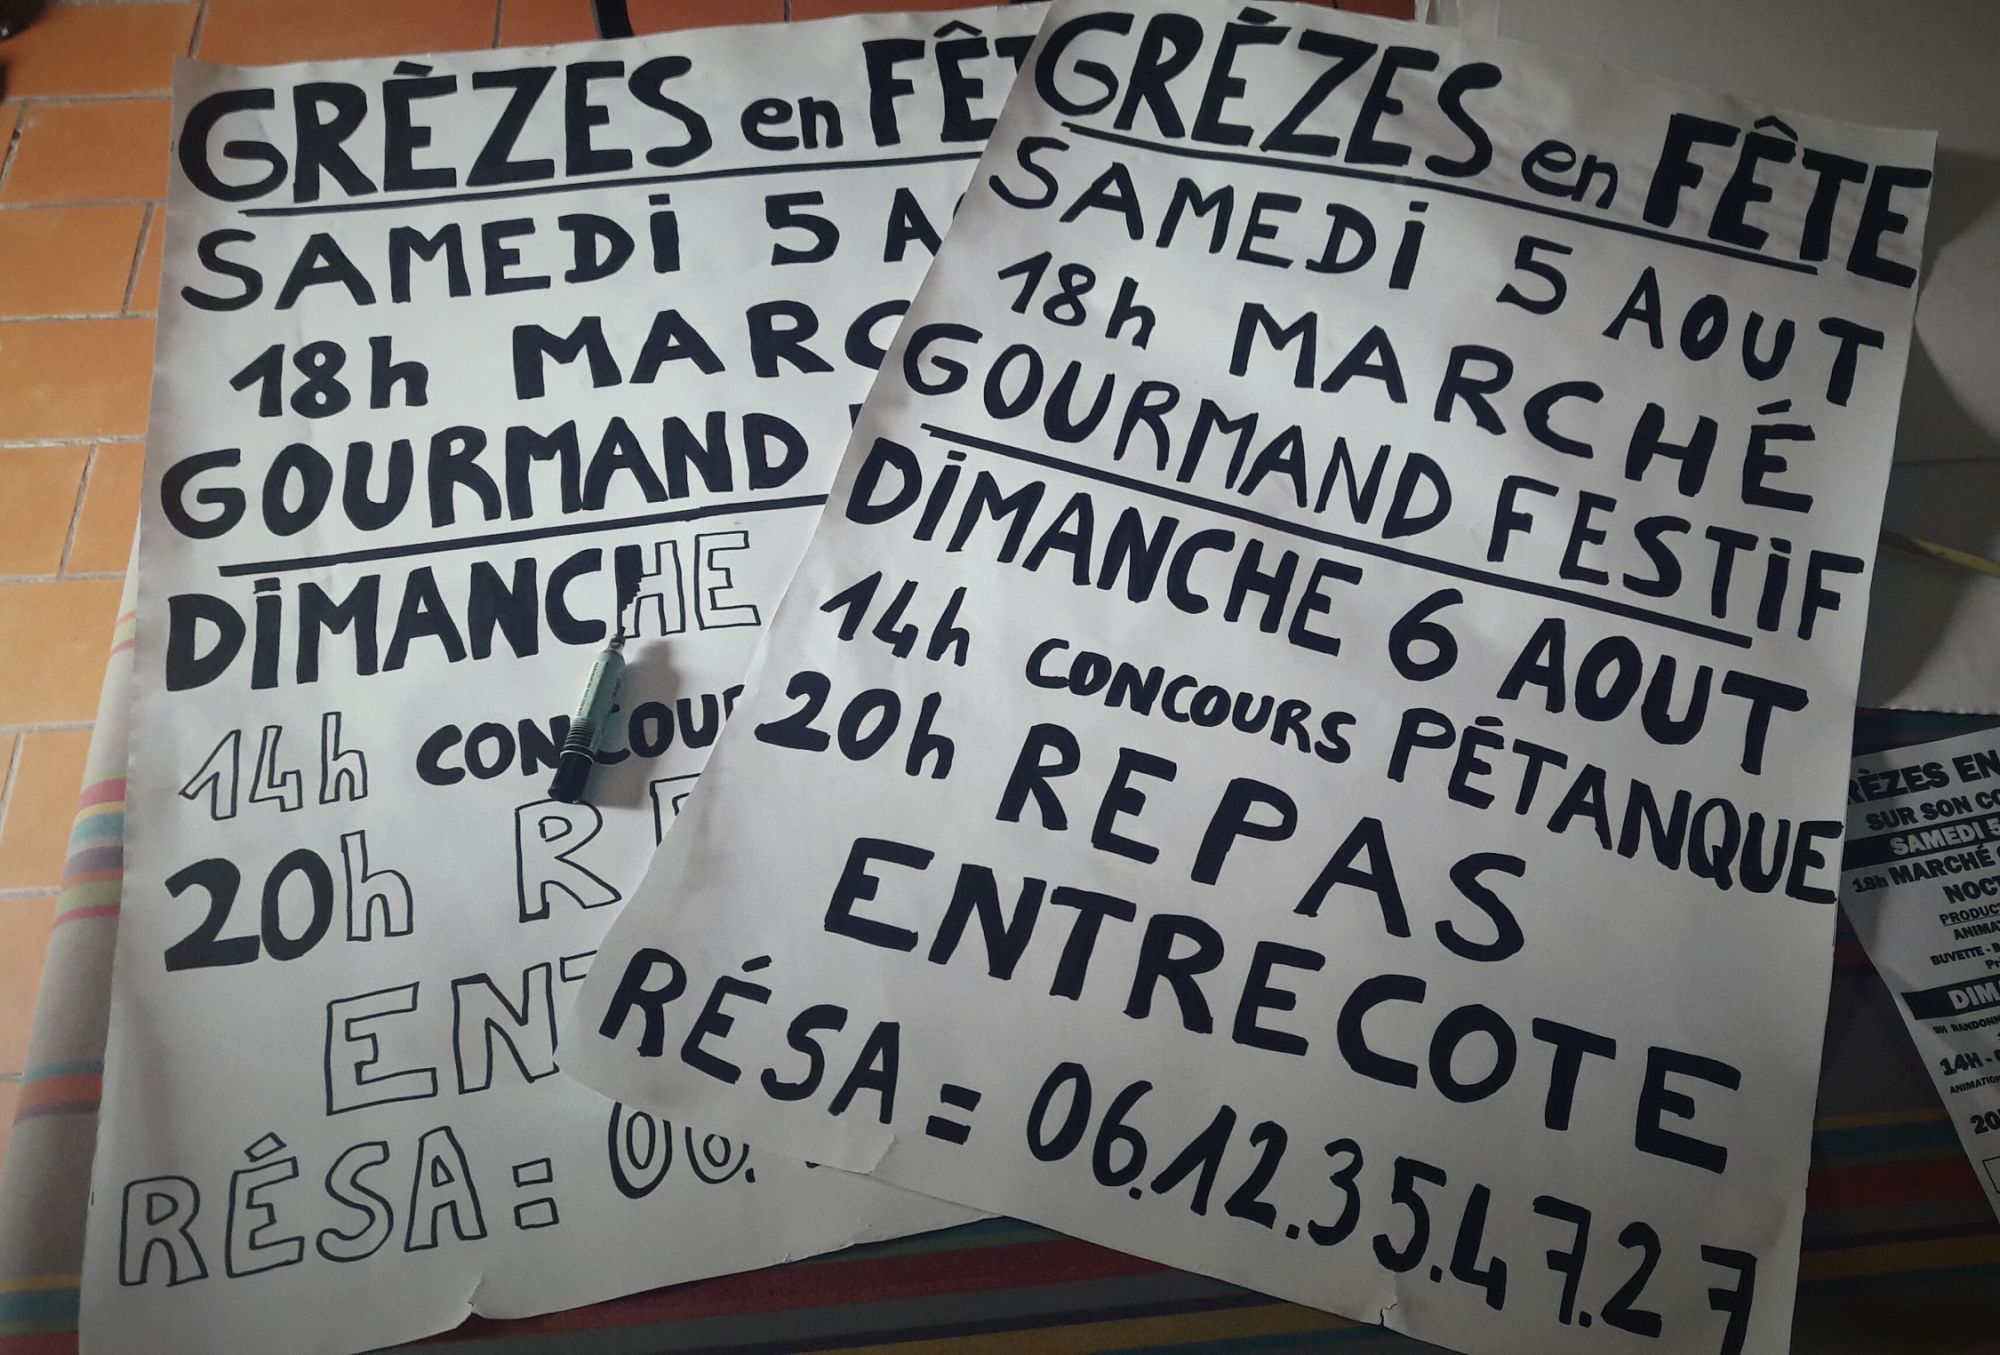 GRÈZES en FÊT
SAMEDI 5 A
18h MARC
GOURMAND
DIMANCHE
14h CONCOUR
20h RE
ENT
RÉSA : 06.
GRÉZES en FÊTE
SAMEDI 5 AOUT
18h MARCHÉ
GOURMAND FESTIF
DIMANCHE 6 AOUT
14h CONCOURS PÉTANQUE
20h REPAS
ENTRECOTE
RÉSA = 06.12.35.47.27
RÈZES EN
SUR SON CO
SAMEDI 5
18h MARCHÉ
NOCT
PRODUC
ANIMAT
BUVETTE - B
DIM
9H RANDONN
14H -
ANIMATIO
20